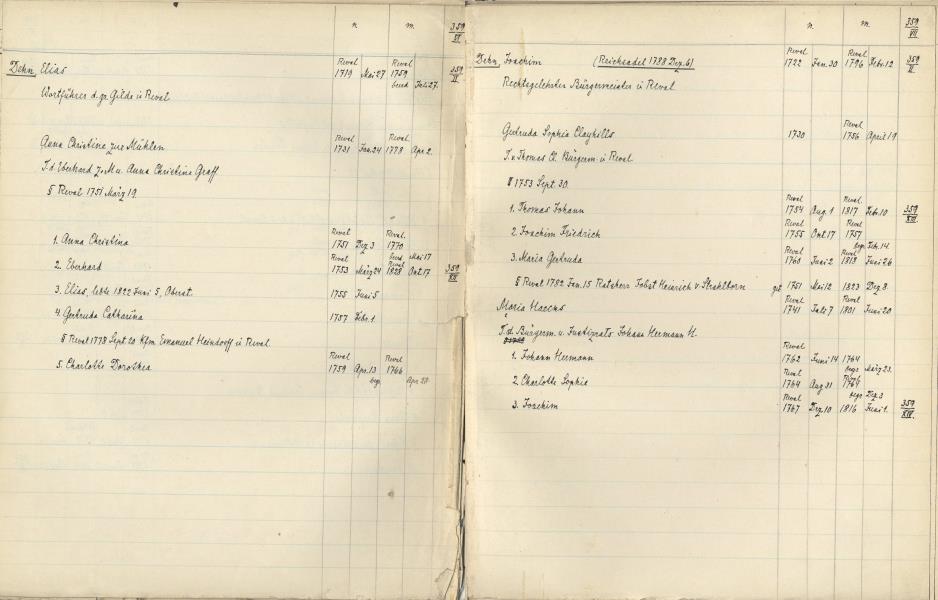 n m 359
VI
Dehn, Elias Reval 1719 Mai 27 Reval 1759 beerd Juli 27. 359
II
Wortführer d. gr. Gilde i/ Reval
Anna Christine zur Mühlen Reval 1731 Jan. 24 Reval 1778 Apr. 2.
T. d. Eberhard z. M. u. Anna Christina Graff
§ Reval 1751 März 19.
1. Anna Christina Reval 1751 Dez 3 Reval. 1770 beerd Mai 17
2. Eberhard Reval 1753 März 24 Reval 1828 Okt. 17 359
XII
3. Elias, lebte 1822 Juni 5, Oberst. 1755 Juni 5
4. Gertruda Catharina 1757 Febr. 1.
§ Reval 1778 Sept 20 Kfm Emanuel Heindorff i/ Reval.
5. Charlotte Dorothea Reval 1759 Apr. 13 Reval 1766 begr. Apr 28.
n. m. 359
VII
Dehn, Joachim (Reichsadel 1788 Dez. 6) Reval 1722 Jan. 30 Reval 1796 Febr. 12 359
II
Rechtsgelehrter Bürgermeister i/ Reval
Gertruda Sophia Clayhills 1730 Reval 1756 April 19
T. v. Thomas Cl. Bürgerm. i/ Reval
§ 1753 Sept. 30.
1. Thomas Johann Reval 1754 Aug. 1 Reval. 1817 Febr. 10 359
XIII.
2. Joachim Friedrich Reval 1755 Okt 17 Reval 1757 begr. Febr. 14.
3. Maria Gertruda Reval 1760 Juni 2 Reval 1818 Juni 26
§ Reval 1782 Jan. 15 Ratsherr Jobst Heinrich v. Strahlborn 1751 Mai 12 1823 Dez 8.
Maria Haecks Reval 1741 Juli 7 Reval 1801 Juni 20
T. d. Bürgerm. u. Justizrats Johann Hermann H.
1. Johann Hermann Reval 1762 Juni 14 1764 begr. März 23.
2. Charlotte Sophia Reval 1764 Aug 31 Reval 1764 begr. Dez 3
3. Joachim Reval 1767 Dez. 10 1816 Juni 1. 359
XIV.